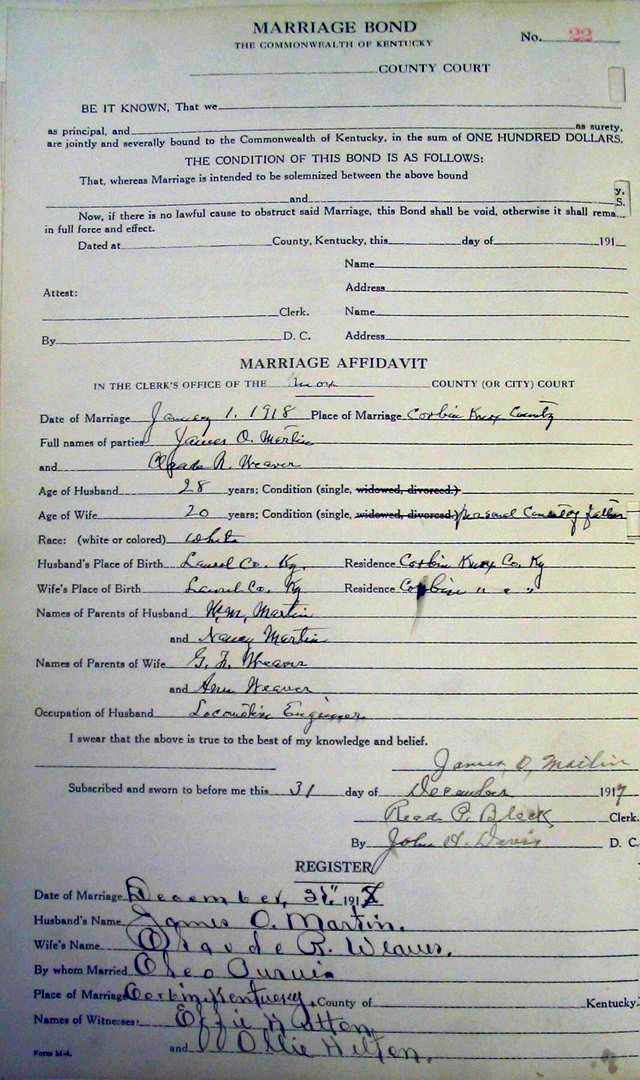 MARRIAGE BOND
THE COMMONWEALTH OF KENTUCKY
No. 22
COUNTY COURT
BE IT KNOWN, That we
as principal, and as surety,
are jointly and severally bound to the Commonwealth of Kentucky, in the sum of ONE HUNDRED DOLLARS.
THE CONDITION OF THIS BOND IS AS FOLLOWS:
That, whereas Marriage is intended to be solemnized between the above bound
and
Now, if there is no lawful cause to obstruct said Marriage, this Bond shall be void, otherwise it shall rema
in full force and effect.
Dated at County, Kentucky, this day of 191
Name
Attest: Address
Clerk. Name
By D. C. Address
MARRIAGE AFFIDAVIT
IN THE CLERK'S OFFICE OF THE Knox COUNTY (OR CITY) COURT
Date of Marriage January 1. 1918 Place of Marriage Corbin Knox County
Full names of parties James O. Martin
and R. Weaver
Age of Husband 28 years; Condition (single, widowed, divorced.)
Age of Wife 20 years; Condition (single, widowed, divorced.) personal father
Race: (white or colored) white
Husband's Place of Birth Laurel Co. Ky. Residence Corbin Knox Co. Ky
Wife's Place of Birth Laurel Co. Ky Residence Corbin " " "
Names of Parents of Husband Wm, Martin
and Nancy Martin
Names of Parents of Wife Weaver
and Ann Weaver
Occupation of Husband Locomotive Engineer
I swear that the above is true to the best of my knowledge and belief.
James O, Martin
Subscribed and sworn to before me this 31 day of December 1917
Read P. Black Clerk.
By John H. Davis D. C.
REGISTER
Date of Marriage December, 31," 1917
Husband's Name James O. Martin.
Wife's Name R. Weaver.
By whom Married Cleo Purvis
Place of Marriage Corbin, Kentucky, County of Kentucky.
Names of Witnesses: Effie Hutton,
and Ollie Hilton.
Form M-4.